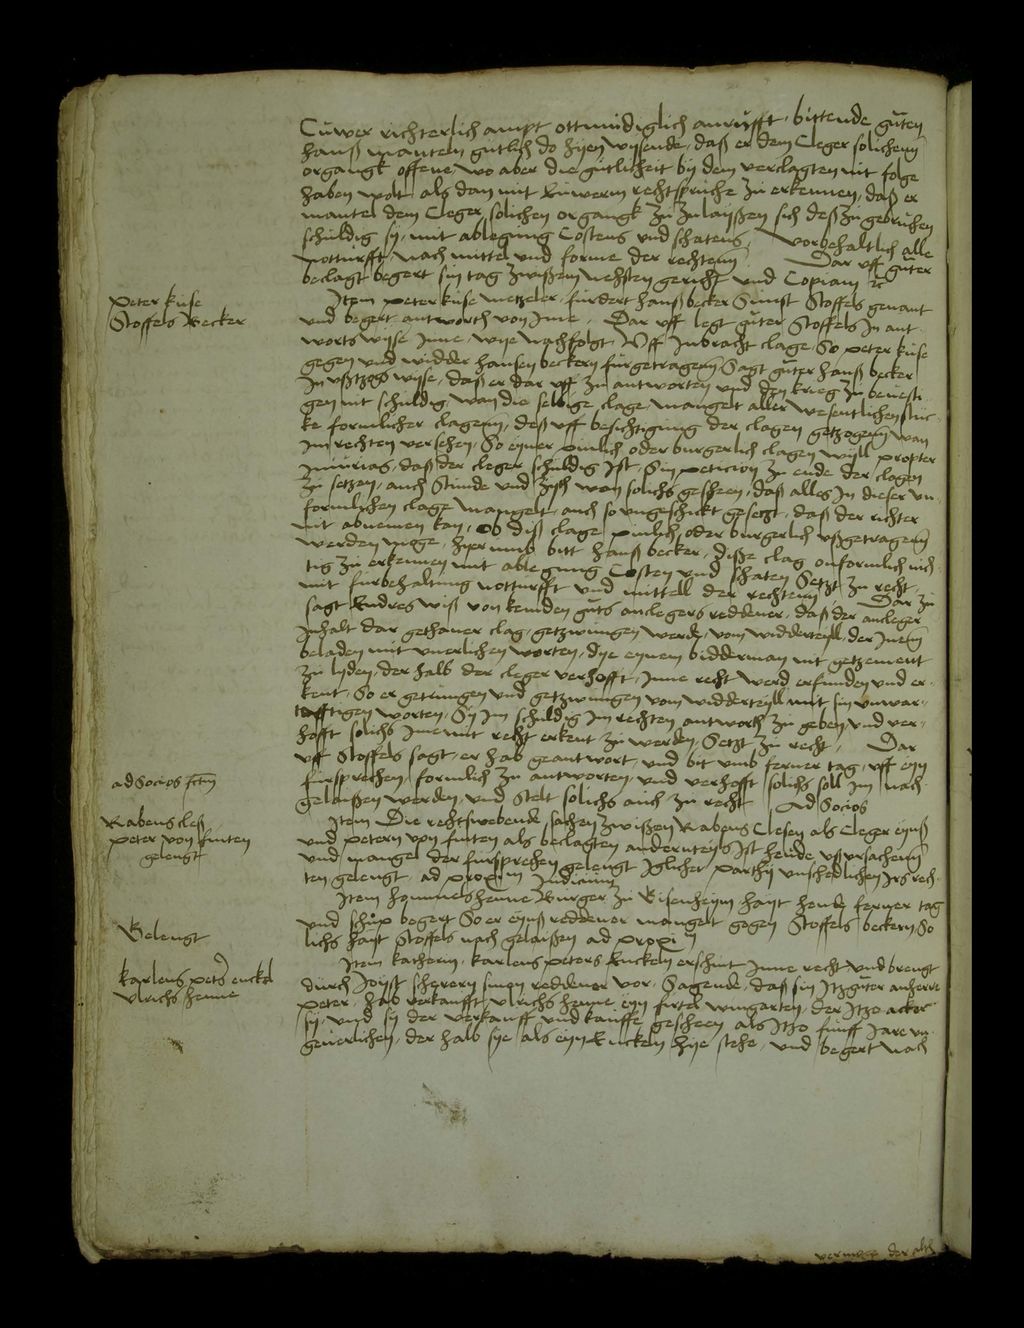 Euwer richterlich ampt ottmüdiglich anrüfft, bittende guten
hanß manteln gutlich do hyen wysende, daß er dem Cleger solichenn
organgk offene, wo aber die gutlicheit by dem verclagten nit folge
haben wolt als dan mit Euwerm rechtspruche zu erkennen, daß er
mantel dem Cleger solichen organgk zu zulayßen sich deß zu gebruchen
schuldig sy, mit ablegung Costens und schatens, Vorbehaltlich alle
notturfft nach mittel und forme der rechtenn. Dar uff guter
beclagt begert sin tag zwißem nehsten gericht und Copiam
Peter kuse
Stoffels Becker
Item peter kuse metzeler, furdert hanß becker Sunst Stoffels genant
und begert antworth von Ime. Dar uff legt guter Stoffels In ant
worts wyse Inne, wye nachfolgt, Uff Inbracht clage, So peter kuse
gegen und widder hansen beckern furgetragenn, Sagt guter hanß becker
In ußtzogs wyse, daß er dar uff zu antworten und den krieg zu bevesti
gen nit schuldig, wan die selbige clage, mangelt aller wesentlichen stuc
ke formlicher clagenn, deß uff besichtigung der clagen getzogenn, wan
Im rechten versehen, So eyner pinlich oder burgerlich clagen wyll propter
Iniurias, daß der cleger schuldig ist, Sin peticion zu ende der clagen
zu setzen, auch Stunde und zyth wan solichs gescheen, daß alles In dieser un
formlichen clage mangelt, auch so ungeschickt gesetzt, daß der richter
nit abnemen kan, Ob diß clage pinlich, oder burgerlich ußgetragenn
werden moge, hyer umb bitt hanß becker, dißße clag onformlich nich
tig zu erkennen mit ablegung Costen und schaten Setzt zu recht
mit furbehaltung notturfft und mittell der rechtenn. Dar zu
sagt Endres wiß von kemden guts anclegers reddener, daß der ancleger
Inhalt dar gethaner clag, getzwungen werde, vom widderteyll, der Inenn
beladen mit unerlichen worten, dye eynem bidderman nit getzement
zu lyden, der halb der cleger verhofft, Inne recht werd erfunden und er
kent, So er getrungen und getzwungen vom widderteyll mit sin unwar
hafftigen worten, Sy Im schuldig Im rechten antworth zu geben und ver
hofft solichs Ime mit recht erkent zu werden, Setzt zu recht. Dar
uff Stoffels sagt, er hab geantwort, und bit umb ferner tag, uff eyn
fursprechen, formlich zu antworten und verhofft solichs soll Im nach
gelaißen werden, und stelt solichs auch zu recht. Ad Socios
ad Socios fctm
Rabens cleß
peter von finten
gelengt
Item Die rechtswebende sachen zwißen Rabens Clesen als Cleger eynß
und petern von finten als beclagten anderntteyls Ist hende uß ursachenn
und mangel der fursprechen gelengt Iglicher parthy unschedlichen Irs rech
ten gelengt ad proximum Iudicium
Item hommelshenne Burger zu Bisenheym hayt hende ferner tag
und schup begert So er eynß reddener mangelt gegen Stoffels beckern, So
lichs hayt Stoffels nach gelaißen ad proxim
Gelengt
karlens peters enckel
Ulrichs henne
Item katherin, karlens peters Enckeln erschint Inne recht und brengt
durch Joist scherern sinen reddener vor, Sagende, daß sin Itzguter anherre
peter, hab verkaufft, ulrichs henne eyn firtel wingarten, der Itzo acker
sy und sy der verkauff und kauffe gescheen als Itzo funff Jare un
geuerlichen, der halb sye als eyn Enckeln hye stehe, und begert nach
vermoge der alth